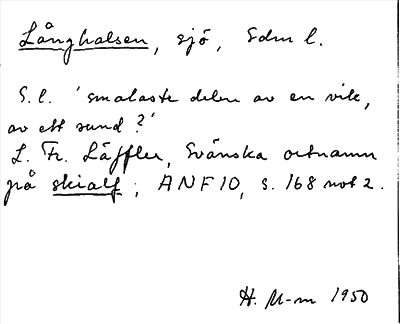 Långhalsen, sjö, Sdm l.
S.l. 'smalaste delen av en vik,
av ett sund?'
L. Fr. Läffler, Svänska ortnamn
på skialf; ANF 10, s. 168 not 2.
H. M-m 1950